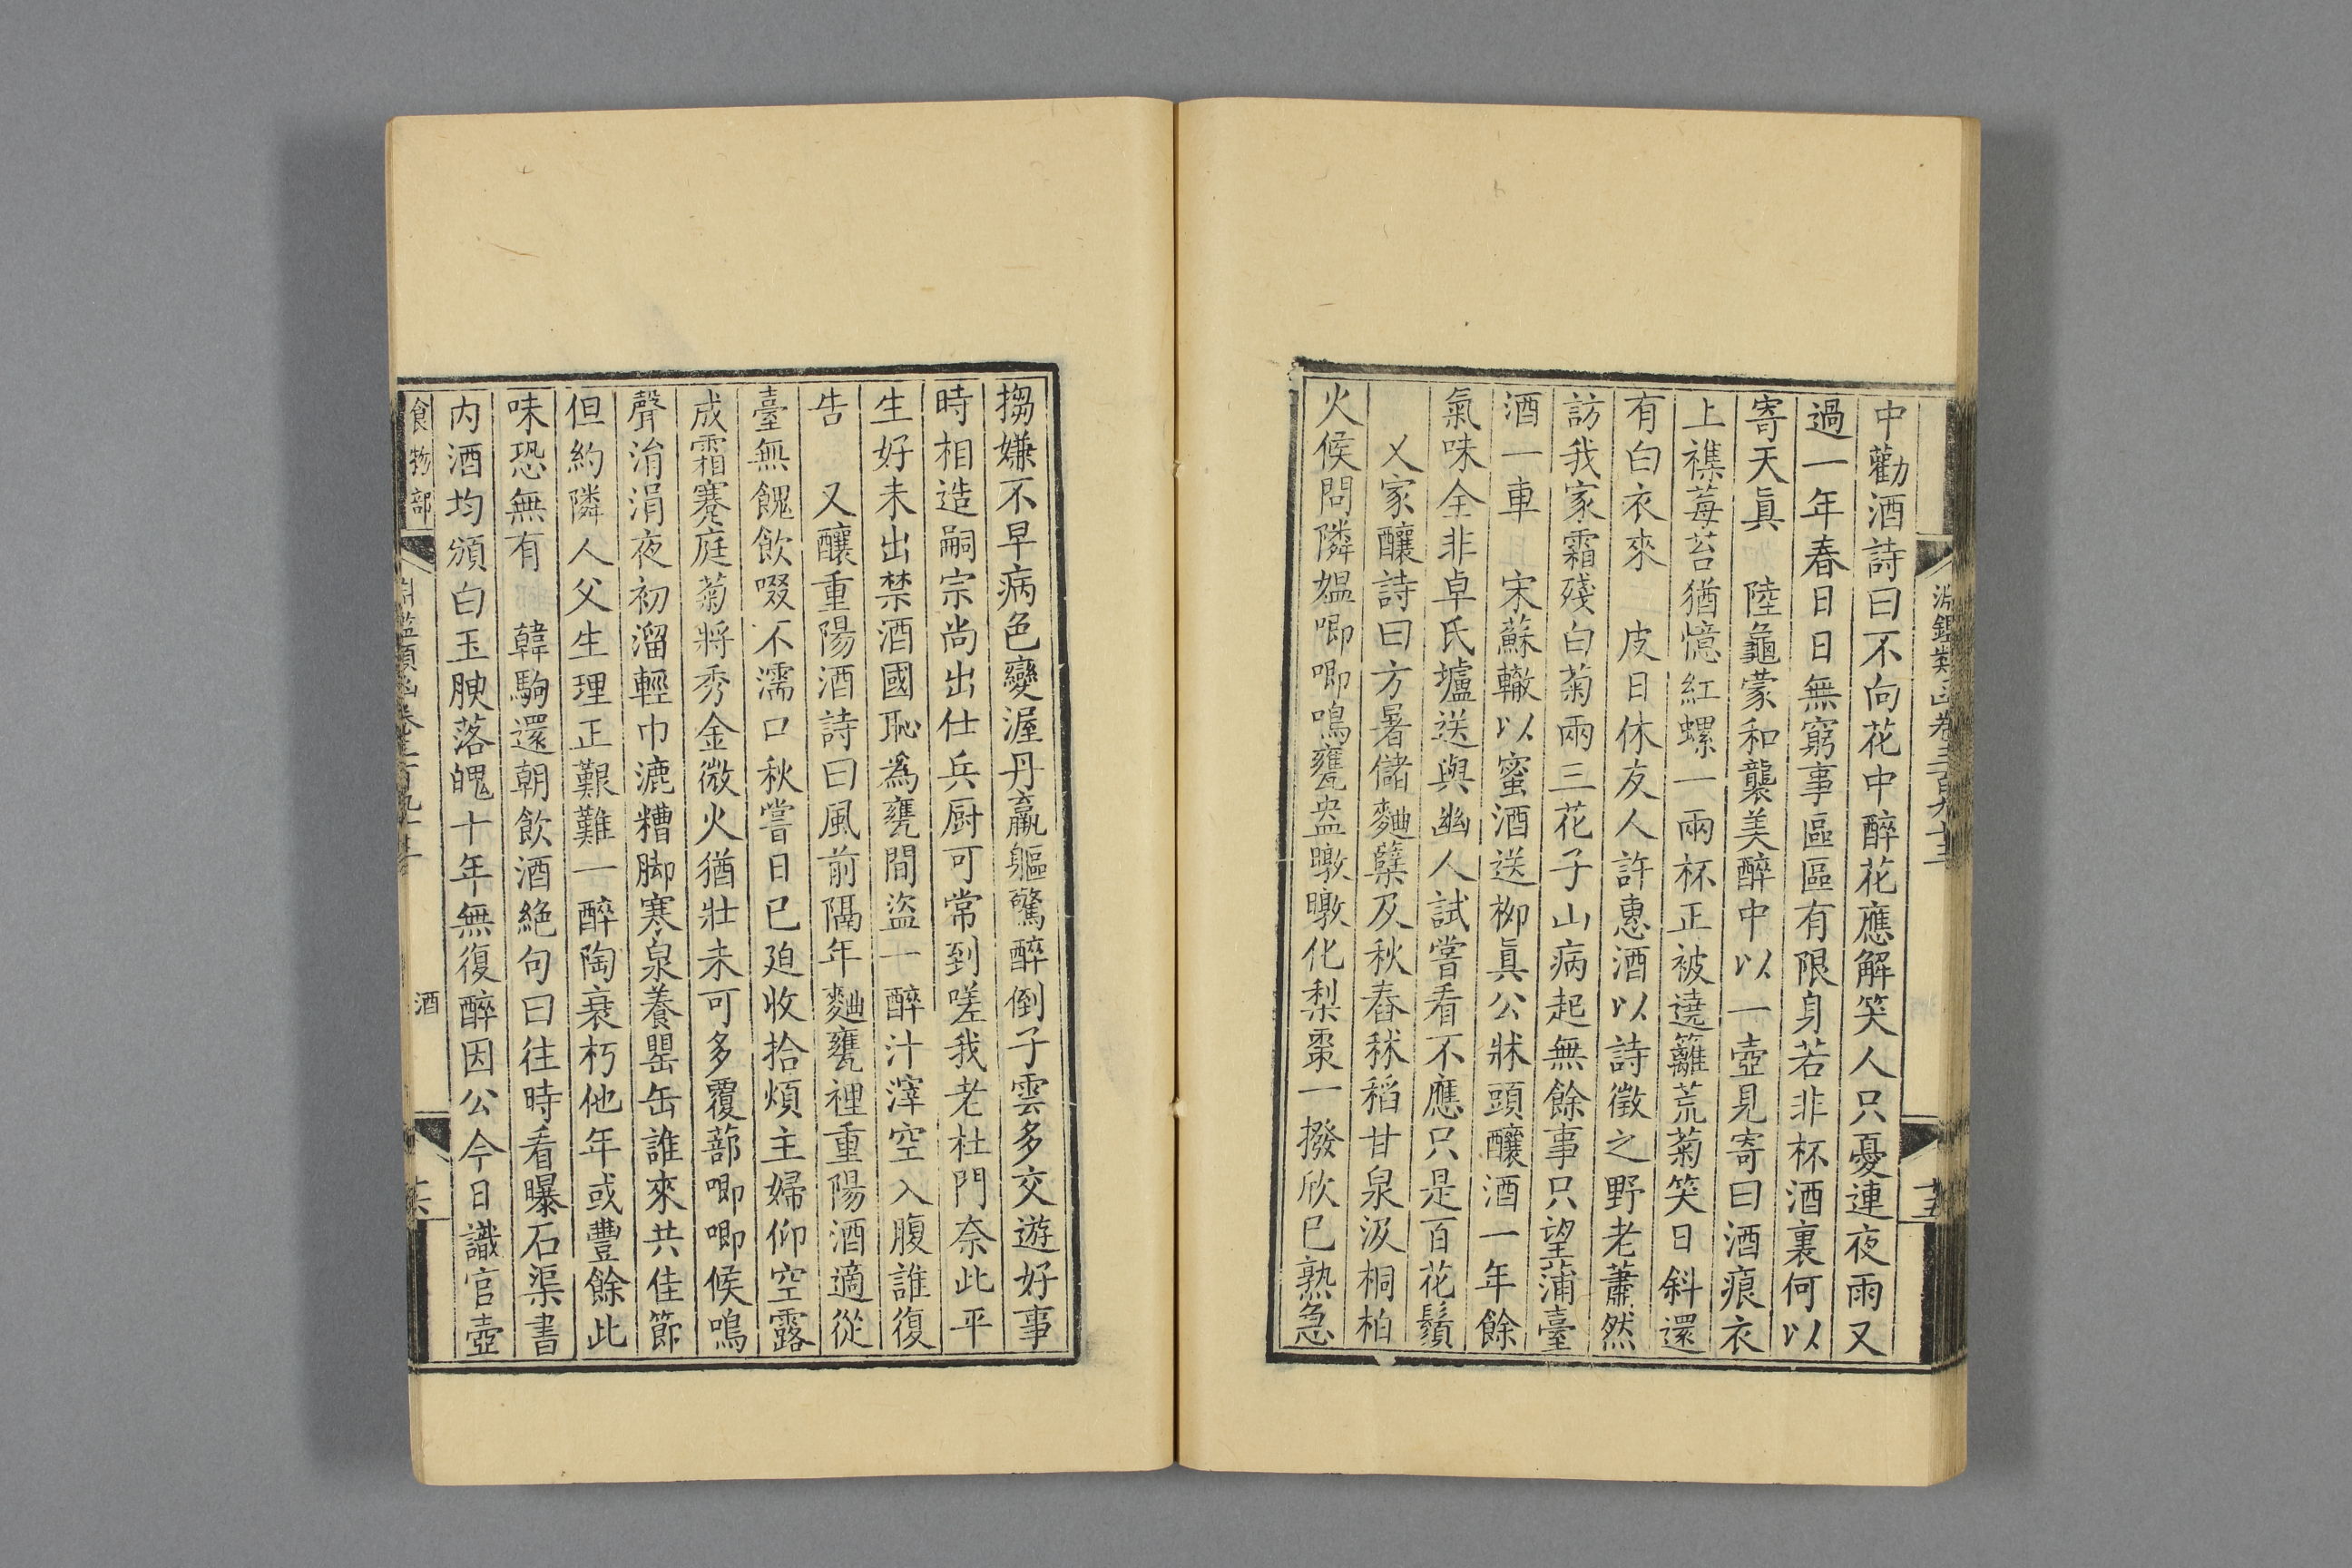 淵鑑類函卷三百九十三
十五
中勸酒詩曰不向花中醉花應解笑人只憂連夜雨又
過一年春日日無窮事區區有限身若非杯酒裏何以
寄天眞　陸龜蒙和襲美醉中以一壺見寄曰酒痕衣
上襍莓苔猶憶紅螺一兩杯正被遶籬荒菊笑日斜還
有白衣來　皮日休友人許惠酒以詩徵之野老蕭然
訪我家霜殘白菊兩三花子山病起無餘事只望蒲臺
酒一車　宋蘇轍以蜜酒送柳眞公牀頭釀酒一年餘
氣味全非卓氏壚送與幽人試嘗看不應只是百花鬚
又家釀詩曰方暑儲麴糵及秋舂秫稻甘泉汲桐柏
火候問隣媼唧唧鳴甕盎暾暾化梨棗一撥欣已熟急
搊嫌不早病色變渥丹羸軀驚醉倒子雲多交遊好事
時相造嗣宗尚出仕兵厨可常到嗟我老杜門奈此平
生好未出禁酒國恥為甕間盜一醉汁滓空入腹誰復
告　又釀重陽酒詩曰風前隔年麴甕裡重陽酒適從
臺無餽飲啜不濡口秋嘗日已廹收拾煩主婦仰空露
成霜蹇庭菊將秀金微火猶壯未可多覆蔀唧唧候鳴
聲涓涓夜初溜輕巾漉糟脚寒泉養罌缶誰來共佳節
但約隣人父生理正艱難一醉陶衰朽他年或豐餘此
味恐無有　韓駒還朝飲酒絶句曰往時看曝石渠書
内酒均頒白玉腴落魄十年無復醉因公今日識官壺
食物部
淵鑑類函卷三百九十三
酒
十六